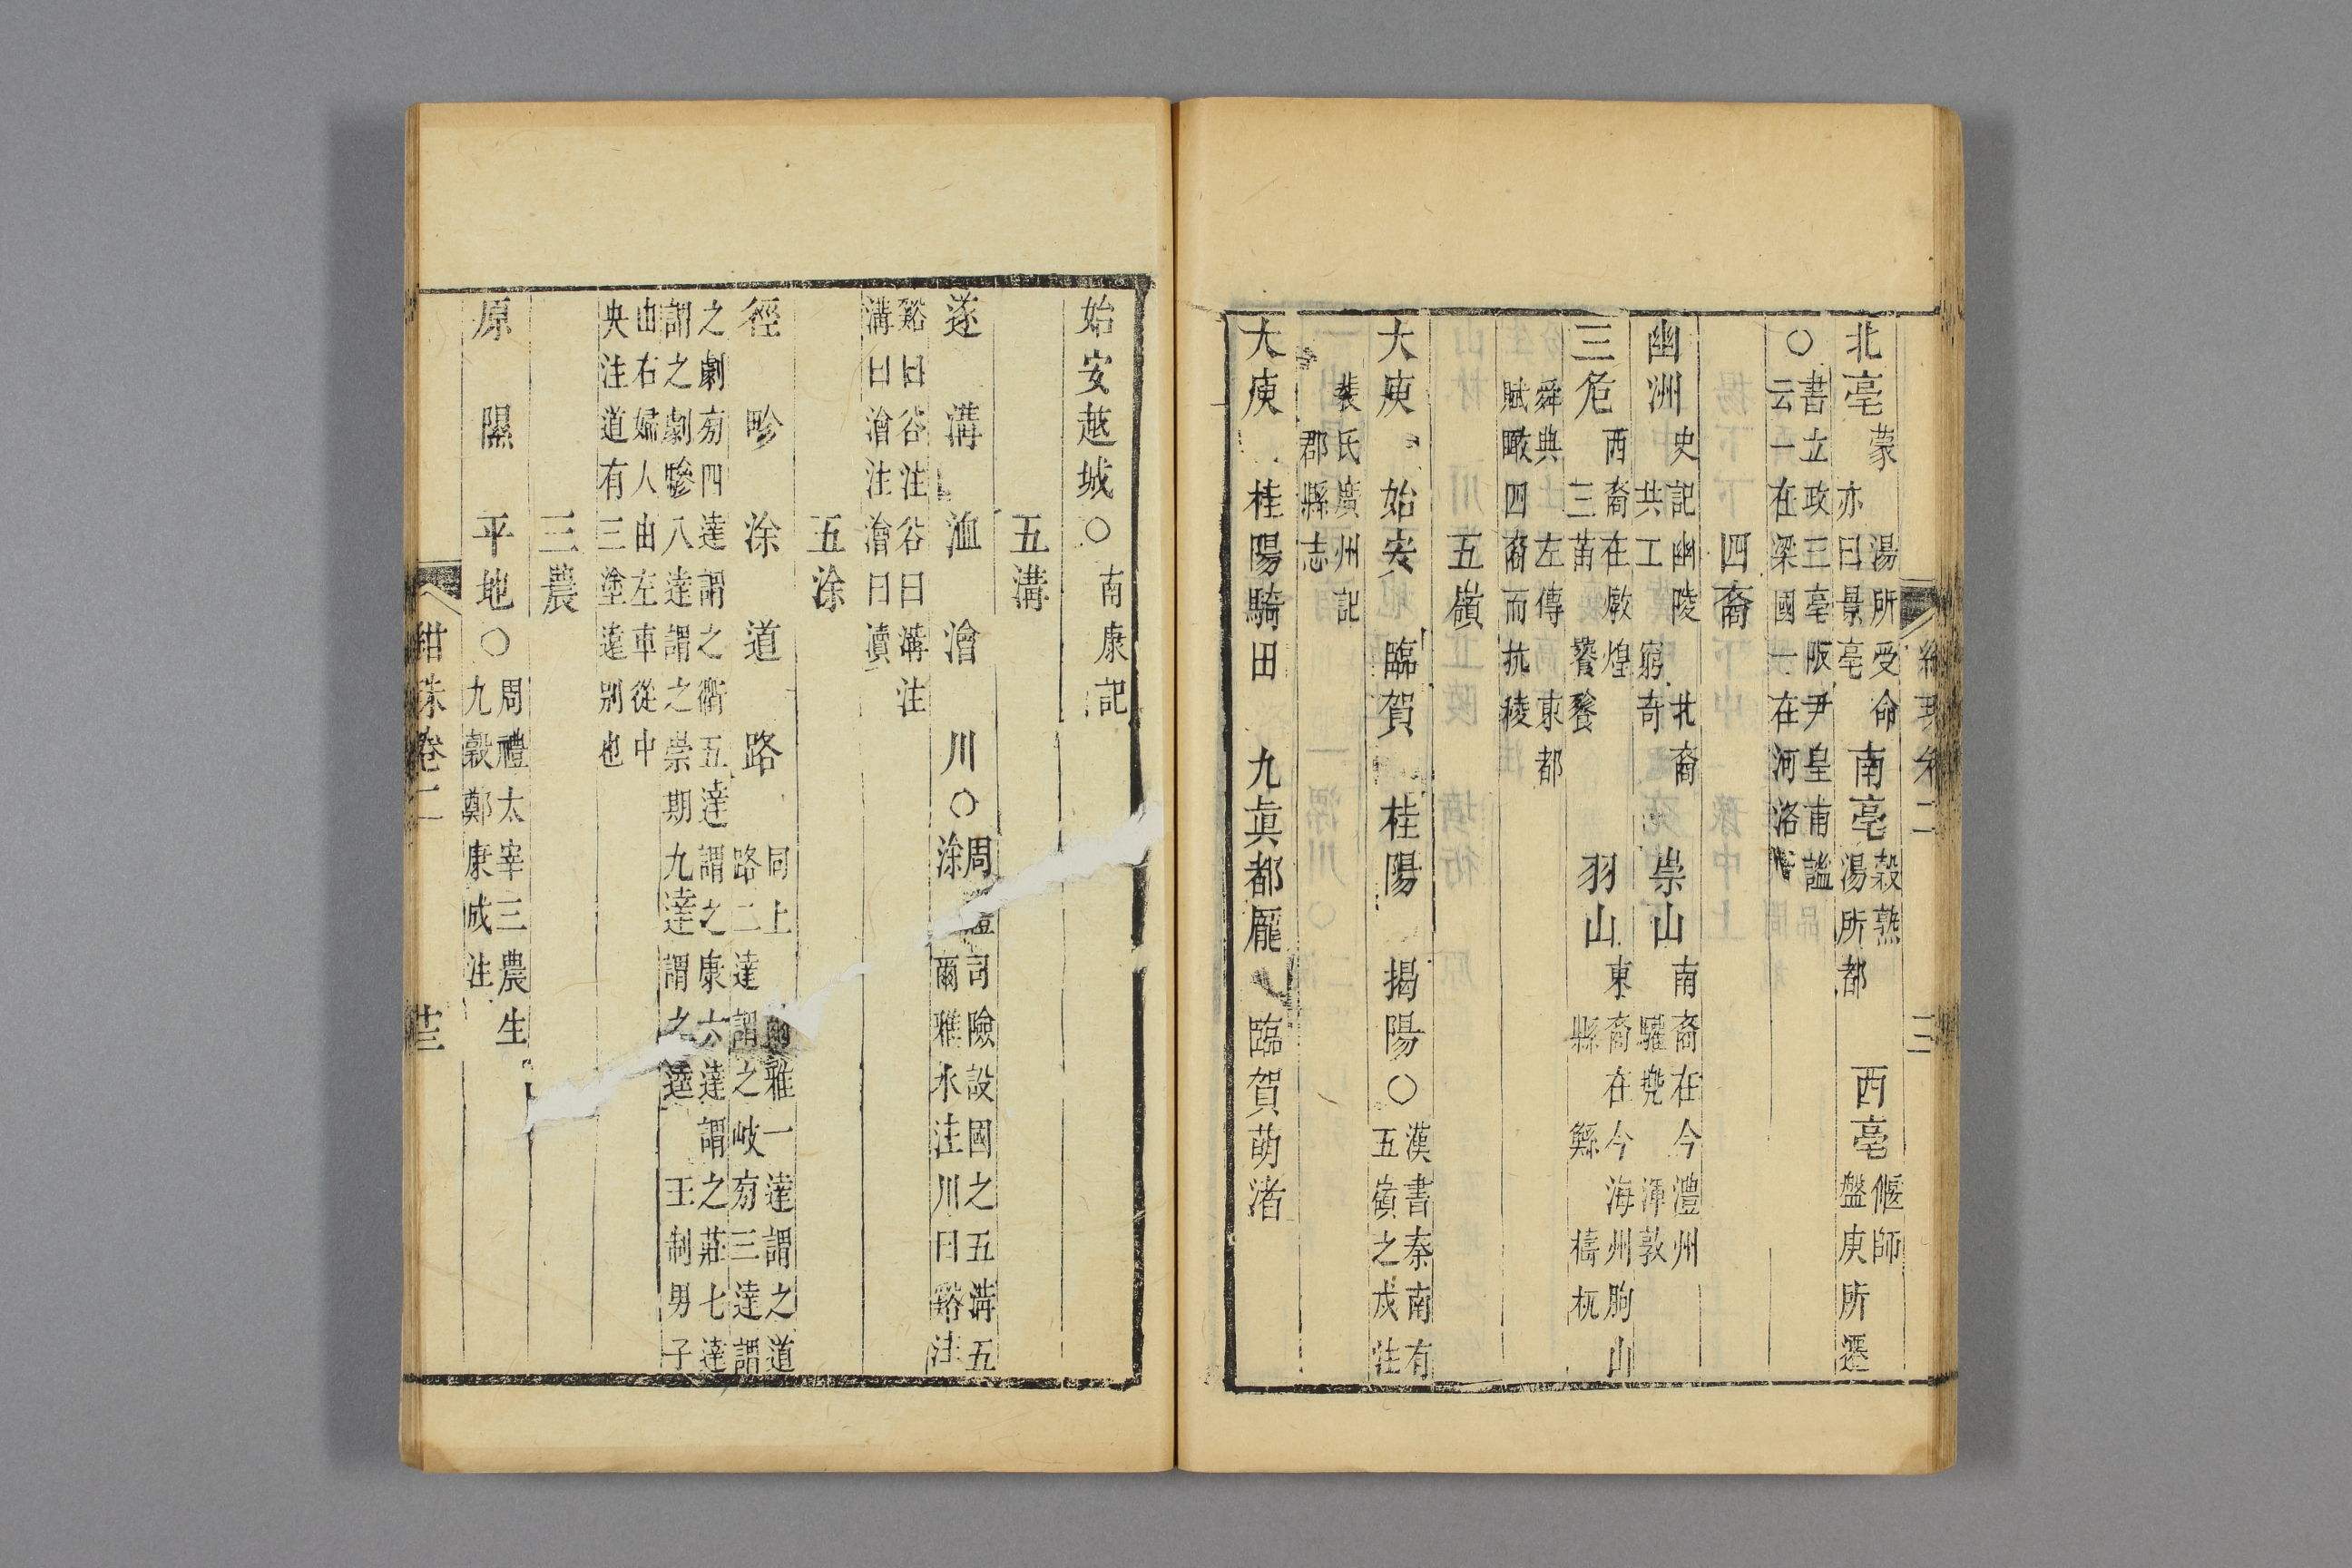 北亳蒙亦曰景亳湯所受命南亳穀熟湯所都西亳偃師盤庚所遷
○書立政三亳阪尹皇甫謐云一在梁國一在河洛
四裔
幽洲史記幽陵共工北裔窮奇崇山南裔在今澧州驩兜渾敦
三危西裔在燉煌三苗饕餮羽山東裔在今海州朐山縣鯀檮杌
舜典左傳東都賦瞰四裔而抗稜
五嶺
大庾始安臨賀桂陽揭陽○漢書秦南有五嶺之戍注
裴氏廣州記郡縣志
大庾桂陽騎田九眞都龐臨賀萌渚
紺珠卷二
始安越城○南康記
五溝
遂溝洫澮川○周禮司險設國之五溝五涂爾雅水注川曰谿注
谿曰谷注谷曰溝注溝曰澮注澮曰瀆
五涂
徑畛涂道路同上爾雅一達謂之道路二達謂之岐旁三達謂
之劇旁四達謂之衢五達謂之康六達謂之莊七達謂之劇驂八達謂之崇期九達謂之逵王制男子
由右婦人由左車從中央注道有三塗遠別也
三農
原隰平地○周禮太宰三農生九穀鄭康成注
紺珠卷二